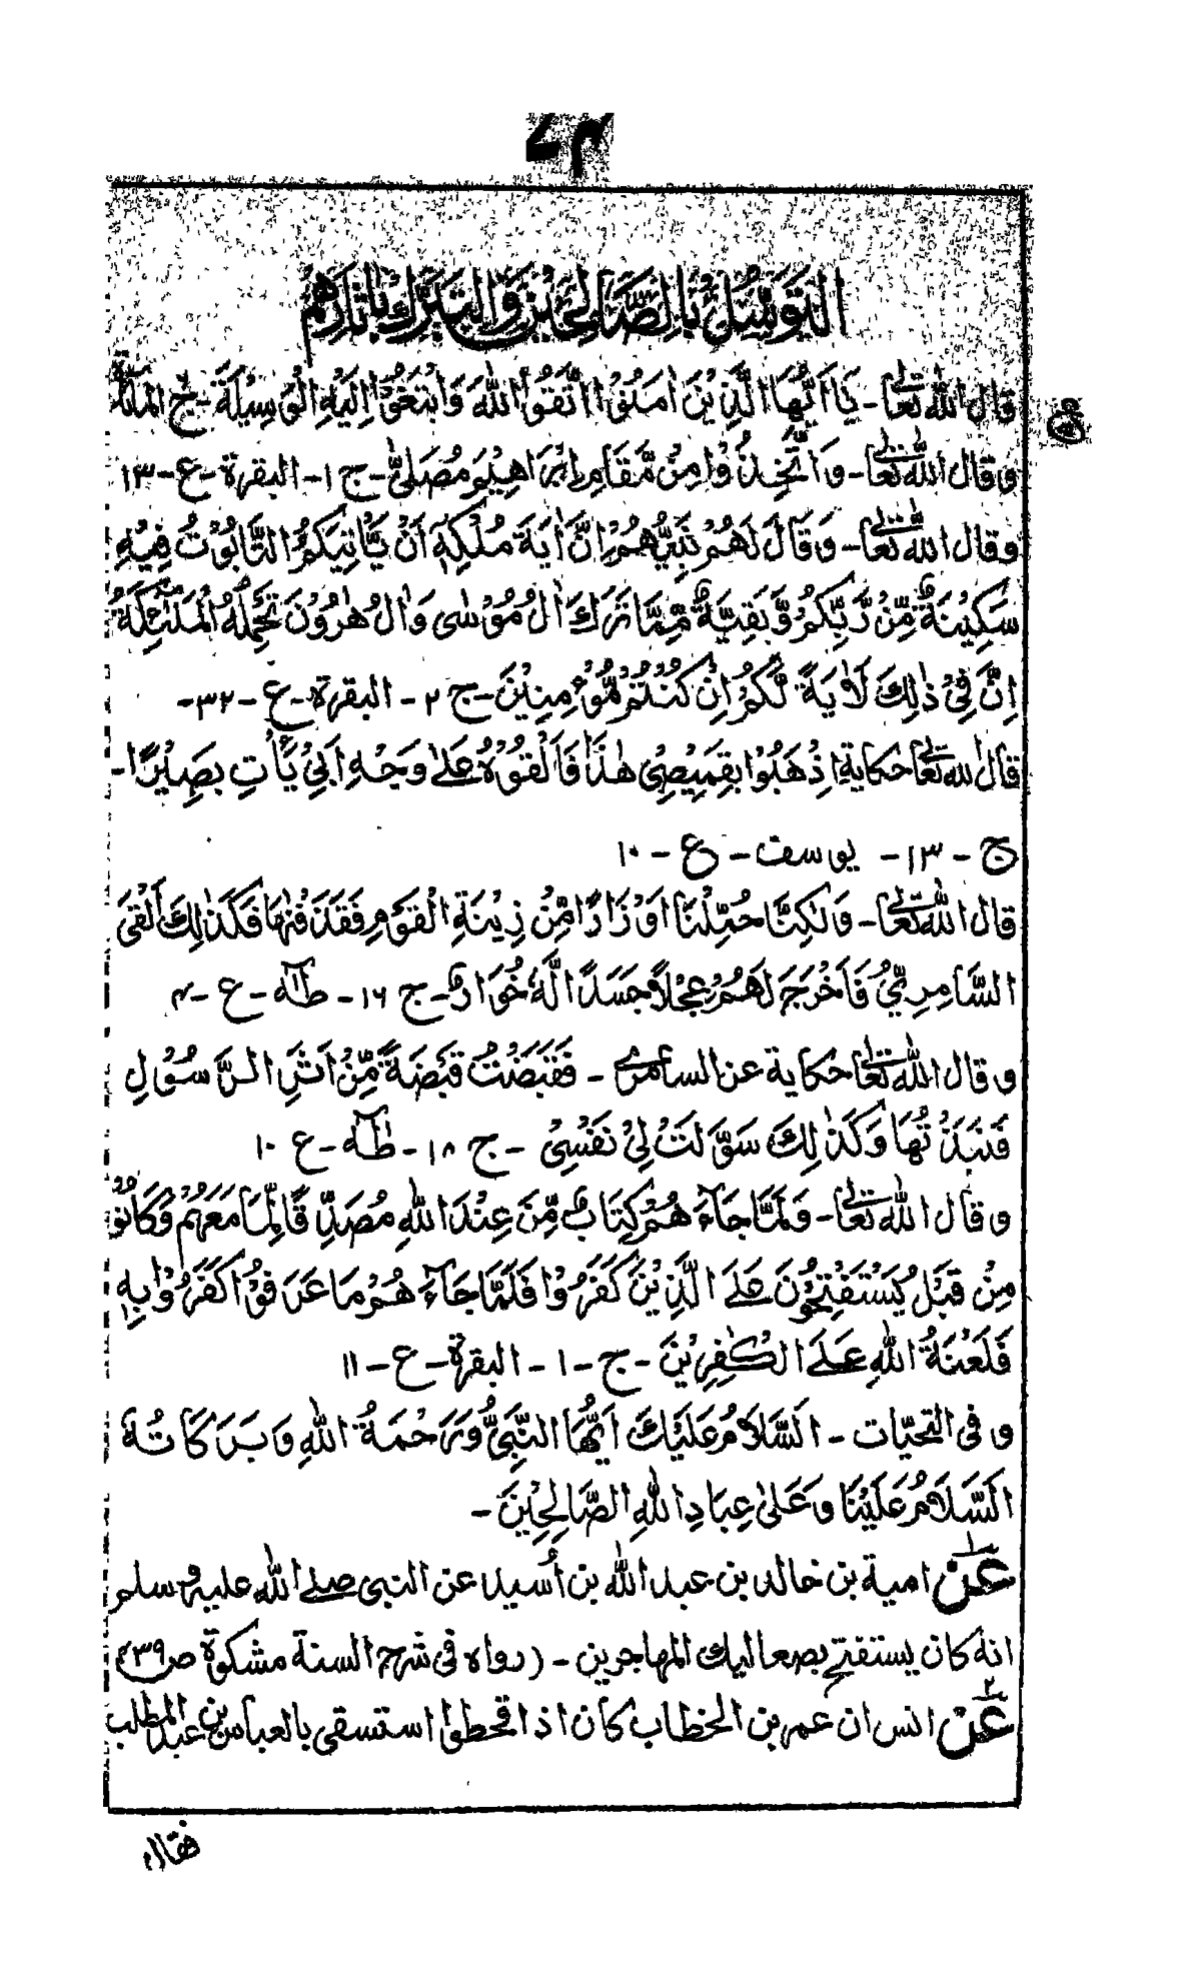 التَّوَسُّلُ بِالصَّالِحِيْنَ وَالتَّبَرُّكُ بِاٰثَارِهِمْ
قال الله تعالیٰ - يَا اَيُّهَا الَّذِيْنَ اٰمَنُوْا اتَّقُوا اللّٰهَ وَابْتَغُوْا اِلَيْهِ الْوَسِيْلَةَ - ج
وقال الله تعالیٰ - وَاتَّخِذُوْا مِنْ مَّقَامِ اِبْرَاهِيْمَ مُصَلًّى - ج ۱ - البقرة - ع - ۱۳
وقال الله تعالیٰ - وَقَالَ لَهُمْ نَبِيُّهُمْ اِنَّ اٰيَةَ مُلْكِهٖ اَنْ يَّاْتِيَكُمُ التَّابُوْتُ فِيْهِ
سَكِيْنَةٌ مِّنْ رَّبِّكُمْ وَبَقِيَّةٌ مِّمَّا تَرَكَ اٰلُ مُوْسٰى وَاٰلُ هٰرُوْنَ تَحْمِلُهُ الْمَلٰٓئِكَةُ
اِنَّ فِيْ ذٰلِكَ لَاٰيَةً لَّكُمْ اِنْ كُنْتُمْ مُّؤْمِنِيْنَ - ج ۲ - البقرة - ع - ۳۲ -
قال الله تعالیٰ حكاية اِذْهَبُوْا بِقَمِيْصِيْ هٰذَا فَاَلْقُوْهُ عَلٰى وَجْهِ اَبِيْ يَاْتِ بَصِيْرًا -
ج - ۱۳ - يوسف - ع - ۱۰
قال الله تعالیٰ - وَلٰكِنَّا حُمِّلْنَا اَوْزَارًا مِّنْ زِيْنَةِ الْقَوْمِ فَقَذَفْنٰهَا فَكَذٰلِكَ اَلْقَى
السَّامِرِيُّ فَاَخْرَجَ لَهُمْ عِجْلًا جَسَدًا لَّهٗ خُوَارٌ - ج ۱۶ - طٰهٰ - ع - ۴
وقال الله تعالیٰ حكاية عن السامری - فَقَبَضْتُ قَبْضَةً مِّنْ اَثَرِ الرَّسُوْلِ
فَنَبَذْتُهَا وَكَذٰلِكَ سَوَّلَتْ لِيْ نَفْسِيْ - ج ۱۸ - طٰهٰ - ع ۱۰
وقال الله تعالیٰ - وَلَمَّا جَآءَهُمْ كِتَابٌ مِّنْ عِنْدِ اللّٰهِ مُصَدِّقٌ لِّمَا مَعَهُمْ وَكَانُوْا
مِنْ قَبْلُ يَسْتَفْتِحُوْنَ عَلَى الَّذِيْنَ كَفَرُوْا فَلَمَّا جَآءَهُمْ مَا عَرَفُوْا كَفَرُوْا بِهٖ
فَلَعْنَةُ اللّٰهِ عَلَى الْكٰفِرِيْنَ - ج - ۱ - البقرة - ع - ۱۱
وفی التحیّات - اَلسَّلَامُ عَلَيْكَ اَيُّهَا النَّبِيُّ وَرَحْمَةُ اللّٰهِ وَبَرَكَاتُهٗ
اَلسَّلَامُ عَلَيْنَا وَعَلٰى عِبَادِ اللّٰهِ الصَّالِحِيْنَ -
۱ عَنْ امية بن خالد بن عبد الله بن اُسيد عن النبی صلے الله عليه وسلم
انه كان يستفتح بصعاليك المهاجرين - (رواه فی شرح السنة مشكوة ص ۴۳۹)
۲ عَنْ انس ان عمر بن الخطاب كان اذا قحطوا استسقی بالعباس بن عبد المطلب
فقال